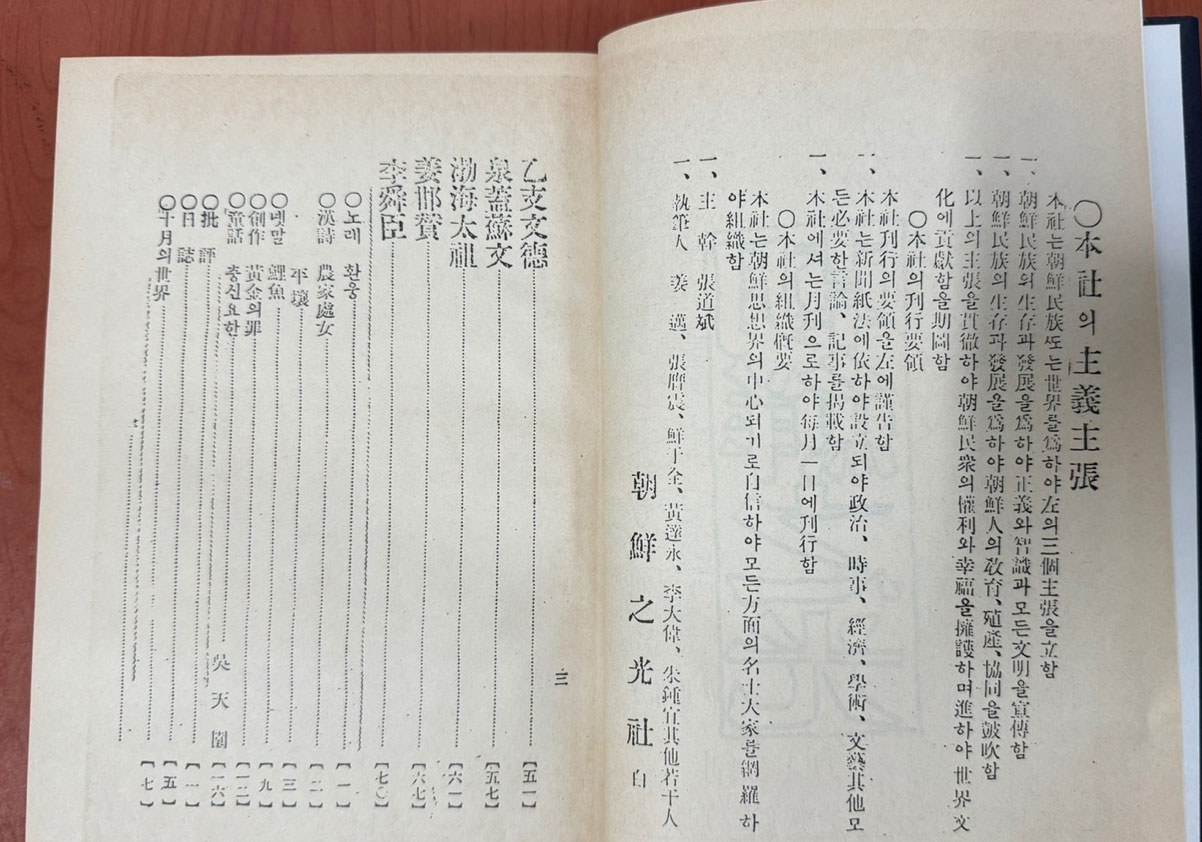 ○本社의主義主張
本社는朝鮮民族ᄯᅩ는世界를爲하야左의三個主張을立함
一、朝鮮民族의生存과發展을爲하야正義와智識과모든文明을宣傳함
一、朝鮮民族의生存과發展을爲하야朝鮮人의敎育、殖產、協同을皷吹함
一、以上의主張을貫徹하야朝鮮民衆의權利와幸福을擁護하며進하야世界文
化에貢獻함을期圖함
○本社의刊行要領
本社刊行의要領을左에謹告함
一、本社는新聞紙法에依하야設立되야政治、時事、經濟、學術、文藝其他모
든必要한言論、記事를揭載함
一、本社에셔는月刊으로하야每月一日에刊行함
○本社의組織槪要
本社는朝鮮思想界의中心되기로自信하야모든方面의名士大家를網羅하
야組織함
一、主幹 張道斌
一、執筆人 姜邁、張膺震、鮮于全、黃達永、李大偉、朱鍾宜其他若干人
朝鮮之光社白
乙支文德【五一】
泉蓋蘇文【五七】
渤海太祖【六一】
姜邯賛【六七】
李舜臣【七〇】
○노래 환웅【一】
○漢詩 農家處女【二】
平壤
○녯말 鯉魚【三】
○創作 黃金의罪【九】
○童話 충신요한 吳天園【一二】
○批評【一六】
○日誌【一】
○十月의世界【五】
【七】
三